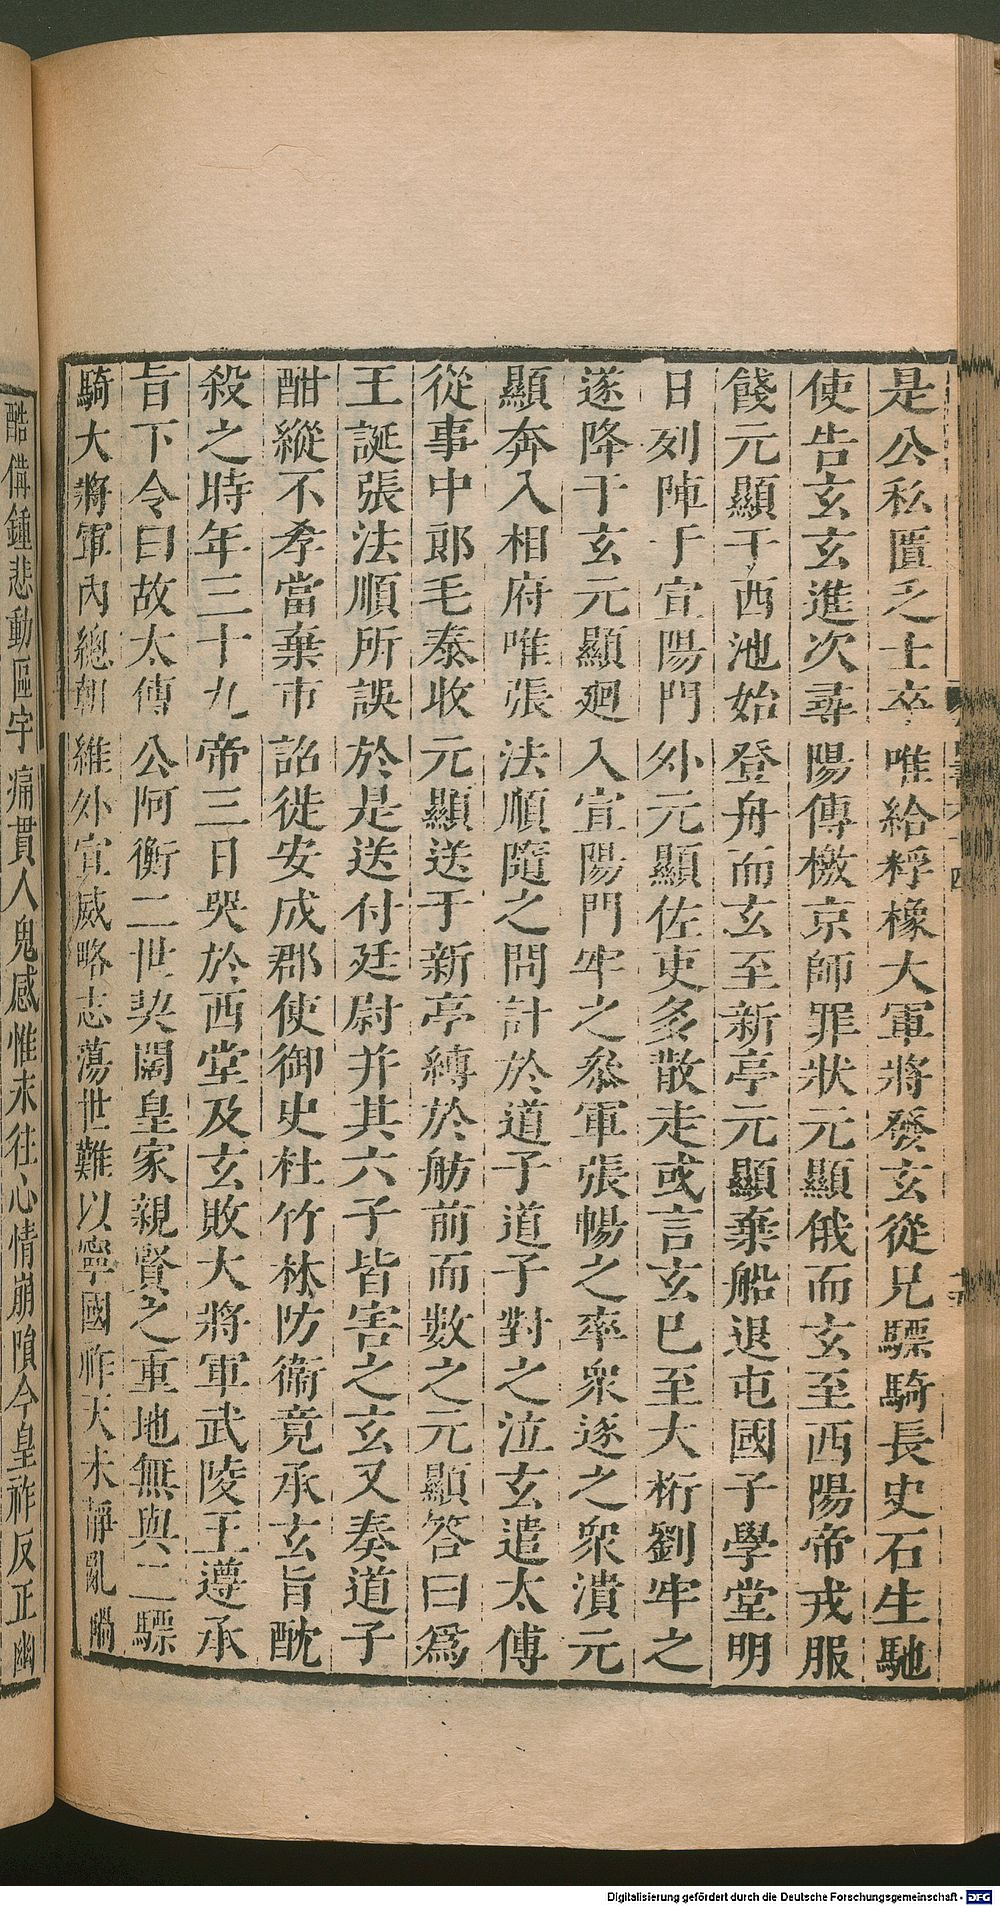 是公私匱乏士卒唯給稃橡大軍將發玄從兄驃騎長史石生馳
使告玄玄進次尋陽傳檄京師罪狀元顯俄而玄至西陽帝戎服
餞元顯于西池始登舟而玄至新亭元顯棄船退屯國子學堂明
日列陣于宣陽門外元顯佐吏多散走或言玄已至大桁劉牢之
遂降于玄元顯廻入宣陽門牢之叅軍張暢之率衆逐之衆潰元
顯奔入相府唯張法順隨之問計於道子道子對之泣玄遣太傅
從事中郎毛泰收元顯送于新亭縛於舫前而數之元顯答曰爲
王誕張法順所誤於是送付廷尉并其六子皆害之玄又奏道子
酣縱不孝當棄市詔徙安成郡使御史杜竹林防衞竟承玄旨酖
殺之時年三十九帝三日哭於西堂及玄敗大將軍武陵王遵承
旨下令曰故太傅公阿衡二世契闊皇家親賢之重地無與二驃
騎大將軍內總朝維外宣威略志蕩世難以寧國祚天未靜亂禍
酷備鍾悲動區宇痛貫人鬼感惟未往心情崩隕今皇祚反正幽
Digitalisierung gefördert durch die Deutsche Forschungsgemeinschaft - DFG